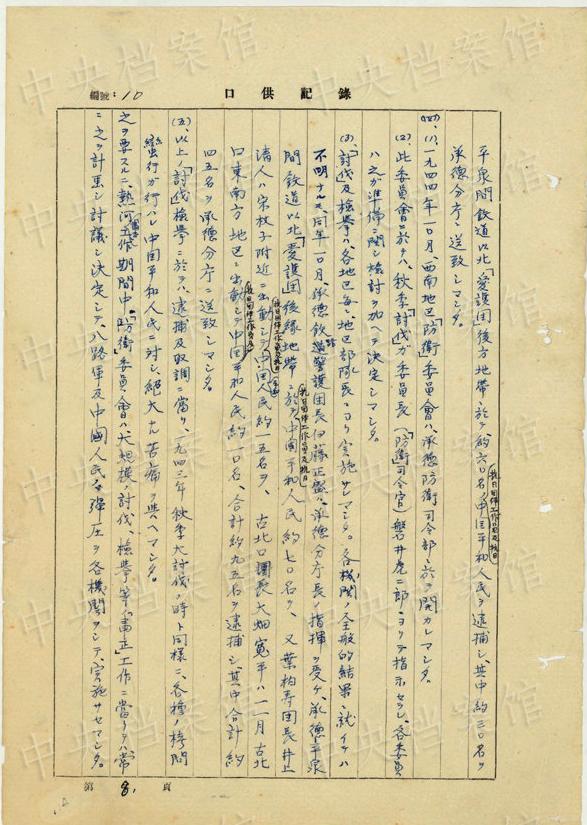 口供記錄
編號:10
平泉間鉄道以北「愛護団」後方地帯ニ於テ約六〇名ノ抗日闘争工作員及抗日中国平和人民ヲ逮捕シ、其中約三〇名ヲ
承徳分庁ニ送致シマシタ。
(四)、(1)、一九四四年一〇月、西南地区「防衛」委員会ハ、承徳防衛司令部ニ於テ開カレマシタ。
(2)、此委員會ニ於テハ、秋季「討伐」ガ委員長(防衛司令官)磐井虎二郎ニヨリテ指示セラレ、各委員
ハ之ガ準備ニ関シ検討ヲ加ヘテ決定シマシタ。
(3)、「討伐」及検挙ハ、各地区毎ニ、地区部隊長ニヨリ実施サレマシタ。各機関ノ全般的結果ニ就イテハ
不明ナルモ、同年一〇月、承徳鉄道警護団長伊藤正盤ハ、承徳分庁長ノ指揮ヲ受ケ、承徳平泉
間鉄道以北「愛護団」後縁地帯ニ於テ抗日闘争工作員及抗日中国平和人民約七〇名ヲ、又葉柏寿団長井上
清人ハ宋杖子附近ニ出動シテ抗日闘争工作員及抗日中国人民約一五名ヲ、古北口団長大畑寛平ハ一一月古北
口東南方地区ニ出動シテ抗日闘争工作員及抗日中国平和人民約一〇名、合計約九五名ヲ逮捕シ、其中合計約
四五名ヲ承徳分庁ニ送致シマシタ。
(五)、以上ノ「討伐」検挙ニ於テハ、逮捕及取調ニ當リ、一九四三年秋季大討伐ノ時ト同様ニ、各種ノ拷問
蛮行ガ行ハレ、中国平和人民ニ対シ、絶大ナル苦痛ヲ与ヘマシタ。
之ヲ要スルニ、熱河工作期間中、「防衛」委員會ハ、大規模ノ討伐、検挙等「粛正」工作ニ當リテハ、常
ニ之ヲ計画シ討議シ決定シテ、八路軍及中國人民ノ強圧ヲ各機関ヲシテ、実施サセマシタ。
第 8 頁
中央档案馆